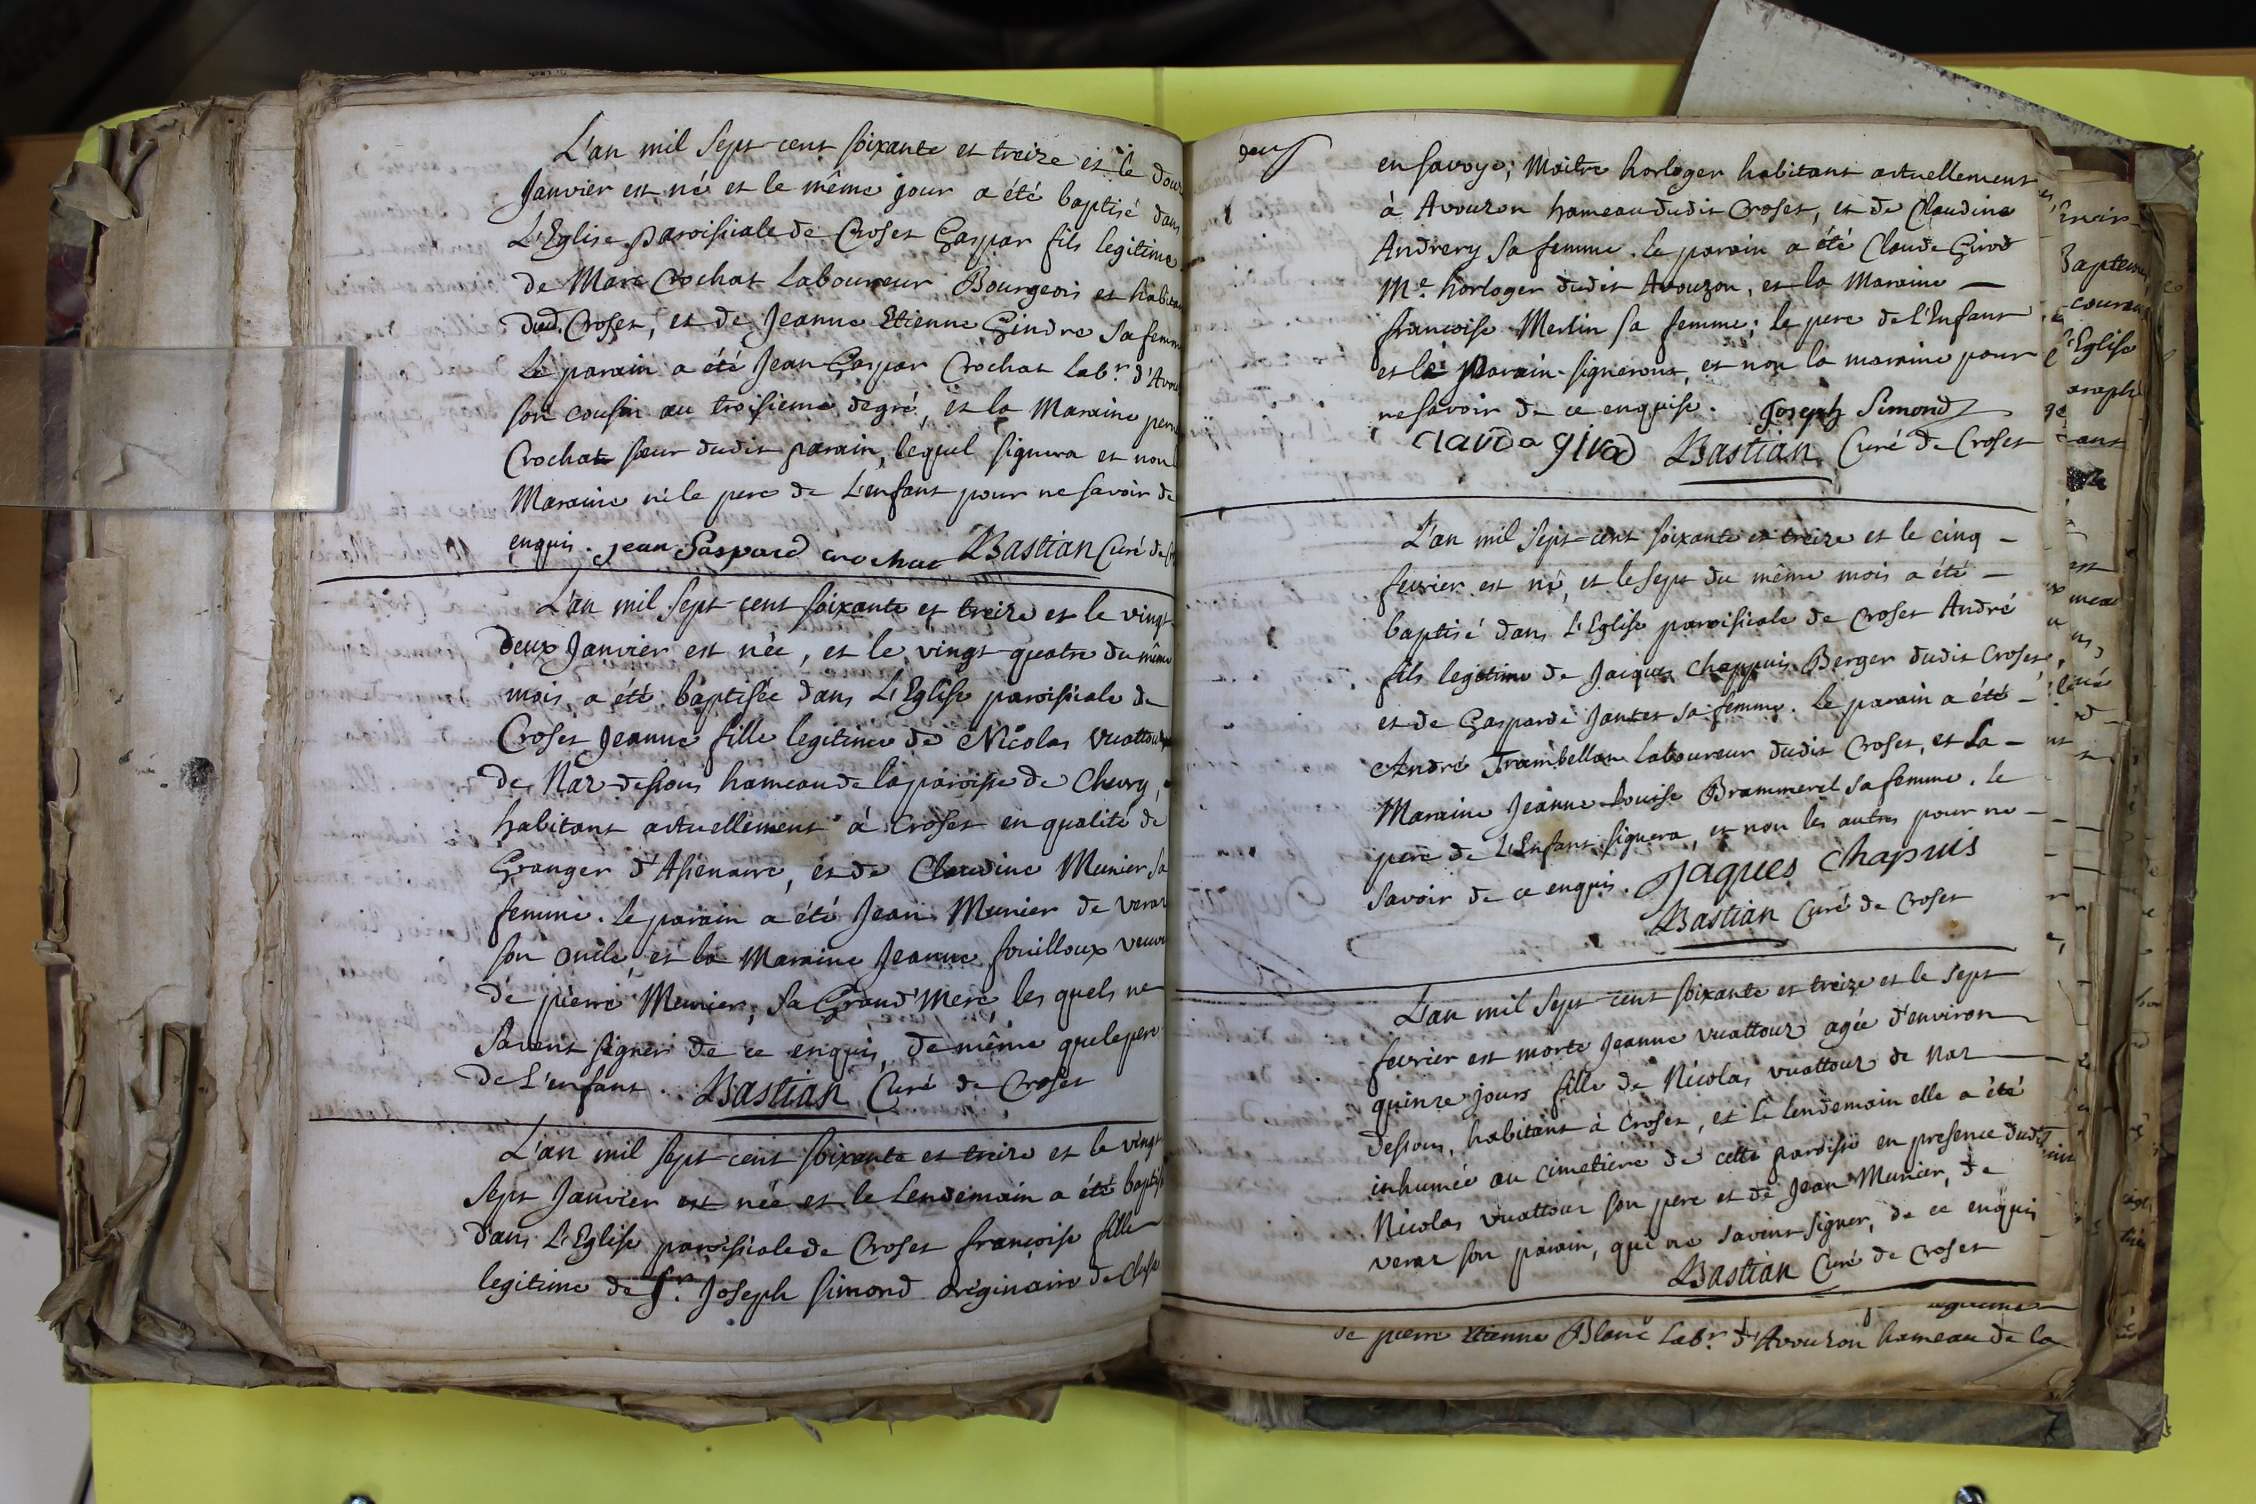 L'an mil sept cent soixante et treize et le douze
Janvier est né et le même jour a été baptisé dans
L'Eglise paroissiale de Croset Gaspar fils legitime
de Marc Crochat Laboureur Bourgeois et habitan
dud. Croset, et de Jeanne Etienne Gindre sa femm
Le parain a été Jean Gaspar Crochat Labr. d'Avou
son cousin au troisieme degré, et la Maraine pern
Crochat soeur dudit parain, lequel signera et non l
Maraine ni le pere de L'enfant pour ne savoir de
enquis. Jean Gaspard crochat Bastian Curé de Cr
L'an mil sept-cent soixante et treize et le vingt
deux Janvier est née, et le vingt-quatre du même
mois a été baptisée dans L'Eglise paroissiale de
Croset Jeanne fille legitime de Nicolas Vuattoux
de Naz-dessous hameau de la paroisse de Chevry,
habitant actuellement à Croset en qualité de
Granger d'Asienaire, et de Claudine Munier sa
femme. Le parain a été Jean Munier de veraz
son oncle, et la Maraine Jeanne fouilloux veuve
de pierre Munier, sa Grand'Mere, les quels ne
savent signer de ce enquis, de même que le pere
de L'enfant. Bastian Curé de Croset
L'an mil sept-cent soixante et treize et le vingt
sept Janvier est née et le Lendemain a été baptis
dans L'Eglise paroissiale de Croset françoise fille
legitime de Sr. Joseph Simond originaire de Cluse
deux
en savoye, Maitre horloger habitant actuellement
à Avouzon hameau dudit Croset, et de Claudine
Andrery sa femme. Le parain a été Claude Girod
Me. horloger dudit Avouzon, et la Maraine —
françoise Merlin sa femme; le pere de l'Enfant
et le parain signeront, et non la maraine pour
ne savoir de ce enquise. Joseph Simond
claude girod Bastian Curé de Croset
L'an mil sept-cent soixante et treize et le cinq —
fevrier est né, et le sept du même mois a été —
baptisé dans L'Eglise paroissiale de Croset André
fils legitime de Jacques Chappuis Berger dudit Croset,
et de Gasparde Jantet sa femme. Le parain a été —
André Trambellan Laboureur dudit Croset, et La —
Maraine Jeanne-Louise Brammerel sa femme. le
pere de L'Enfant signera, et non les autres pour ne —
savoir de ce enquis. Jaques Chapuis
Bastian Curé de Croset
L'an mil sept-cent soixante et treize et le sept
fevrier est morte Jeanne Vuattoux agée d'environ
quinze jours fille de Nicolas Vuattoux de Naz
dessous, habitant à Croset, et le lendemain elle a été
inhumée au cimetière de cette paroisse en presence dudit
Nicolas Vuattoux son pere et de Jean Munier, de
veraz son parain, qui ne savent signer, de ce enquis
Bastian Curé de Croset
de pierre Etienne Blanc Labr. d'Avouzon hameau de la